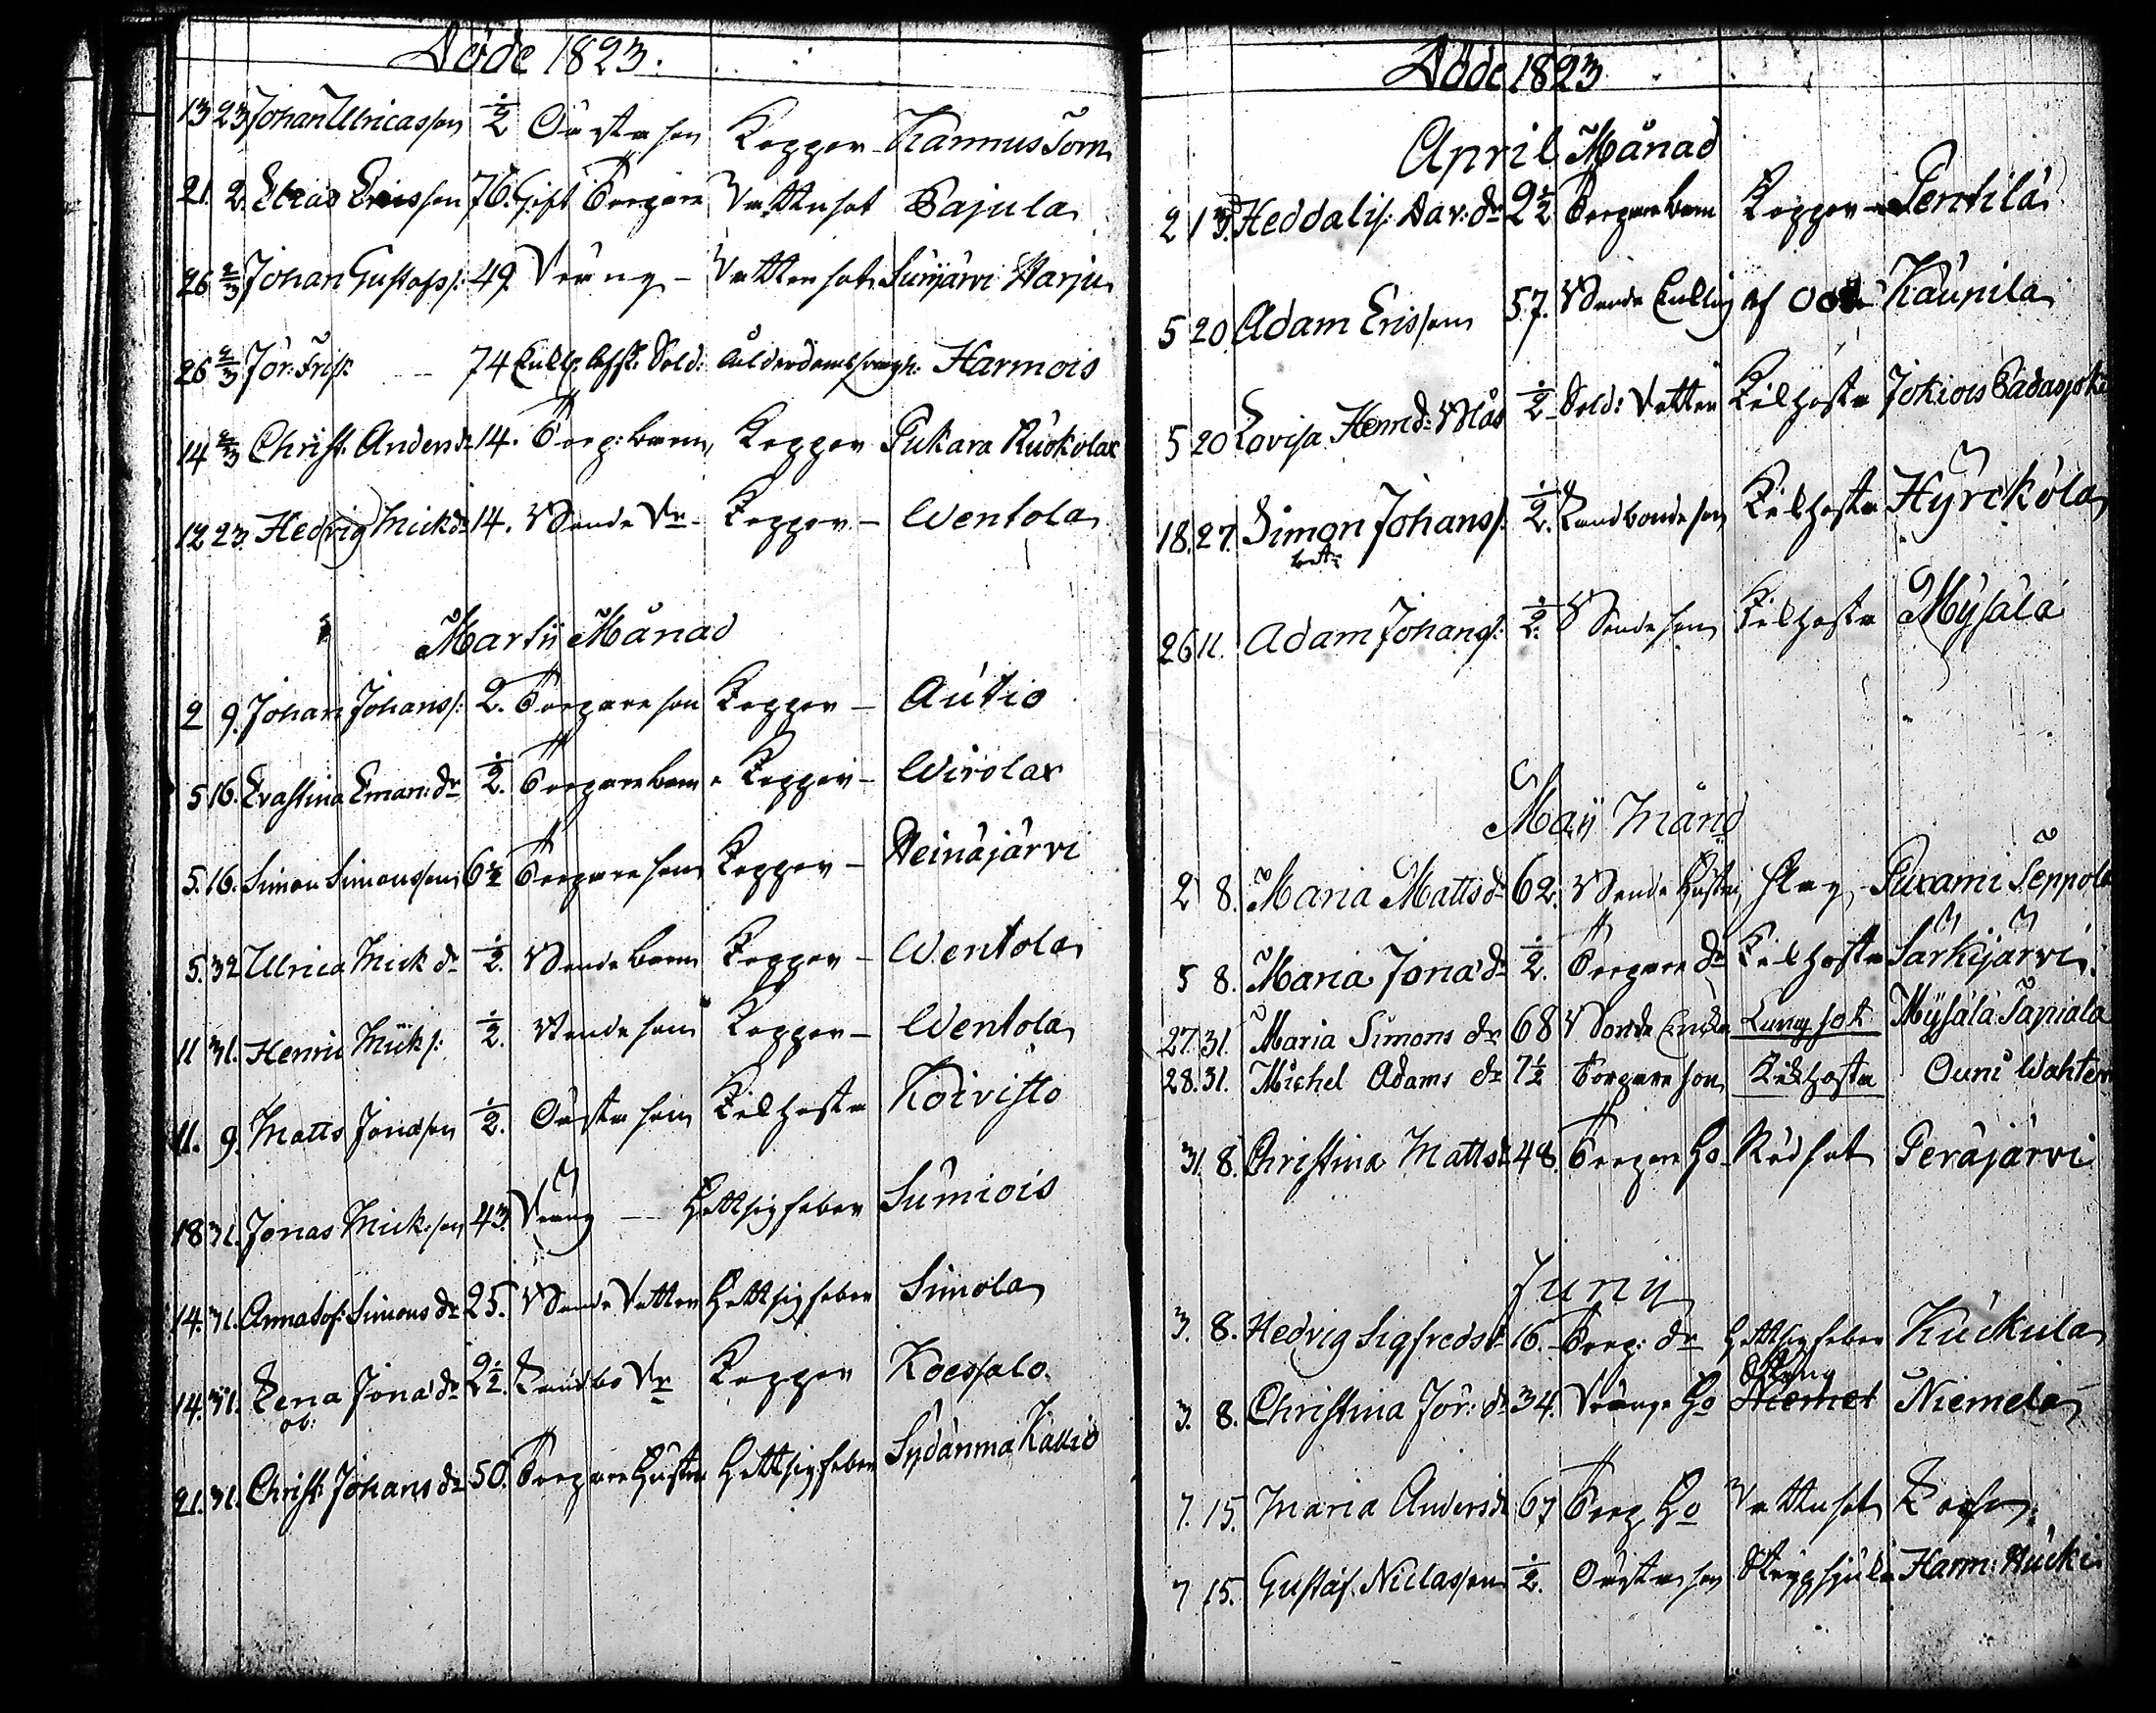 Döde 1823.
13 23 Johan Ulricasson 1/2 Oästa son Koppor Kannus Torn
21. 2. Elias Ericsson 76. Gift Torpare Vattusot Pajula
26 2/3 Johan Gustafss: 49. Dräng Vattensot Surijärvi Harju
26 2/3 Jör: Fris: 74 Enkl: Afsk: Sold: Ålderdoms Harmois
14 2/3 Christ: Anders dr 14. Torp: barn Koppor Pukara Ruokolax
12 23. Hedvig Mick dr 14. Bonde Dr Koppor Wentola
Martii Månad
2 9. Johan Johans: 2. Torpare son Koppor Autio
5 16. Evastina Eman: dr 1/2. Torpare barn Koppor Wirolax
5. 16. Simon Simonsson 6 1/2 Torpare son Koppor Heinäjärvi
5. 32 Ulrica Mick dr 1/2. Bonde barn Koppor Wentola
11 31. Henric Mick: 1/2. Bonde son Koppor Wentola
11. 9. Matts Jonasson 1/2. Oästa son Kikhosta Koivisto
18 31. Jonas Mick:son 43. Dräng Hettsigfeber Sumiois
14. 31. Anna Sof: Simons dr 25. Bonde Dotter Hettsigfeber Simola
14. 31. Lena Jona dr 2 1/2. Landbo Dr Koppor Koessalo.
ob:
21. 31. Christ: Johans dr 50. Torpare Hustru Hettsigfeber Sydänma Kallio
Döde 1823
April Månad
2 13. Hedda Lis: Dav: dr 2 1/2 Torpare barn Koppor Pentilä
5 20. Adam Ericsson 57. Bonde Enkling af Kaupila
5 20 Lovisa Henr dr 1/2 Sold: Dotter Kikhosta Jokiois Padasjoki
18. 27. Simon Johans: 1/2. Landbonde son Kikhosta Hyrckölä
26 11. Adam Johans: 1/2. Bonde son Kikhosta Mysälä
Maij Månd
2 8. Maria Matts dr 62. Bonde Hustru Slag Puxami Seppola
5 8. Maria Jona dr 1/2. Torpare dr Kikhosta Särkijärvi.
27. 31. Maria Simons dr 68 Bonde Enka Lungsot Mysälä Tapiala
28. 31. Michel Adams dr 7 1/2 Torpare son Kikhosta Ouni Wahter
31. 8. Christina Matts dr 48. Torpare Ho Rödsot Peräjärvi
Junij
3. 8. Hedvig Sigfreds dr 16. Torp: dr Hettsigfeber Kuckula
3. 8. Christina Jör: dr 34. Drängs Ho Niemelä
7. 15. Maria Anders dr 67 Torp Ho Vattusot
7 15. Gustaf Niclasson 1/2. Oästa son Harm: Hucki